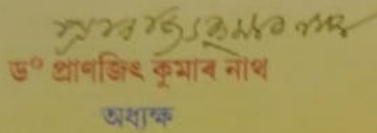 ড° প্ৰাণজিৎ কুমাৰ নাথ
অধ্যক্ষ